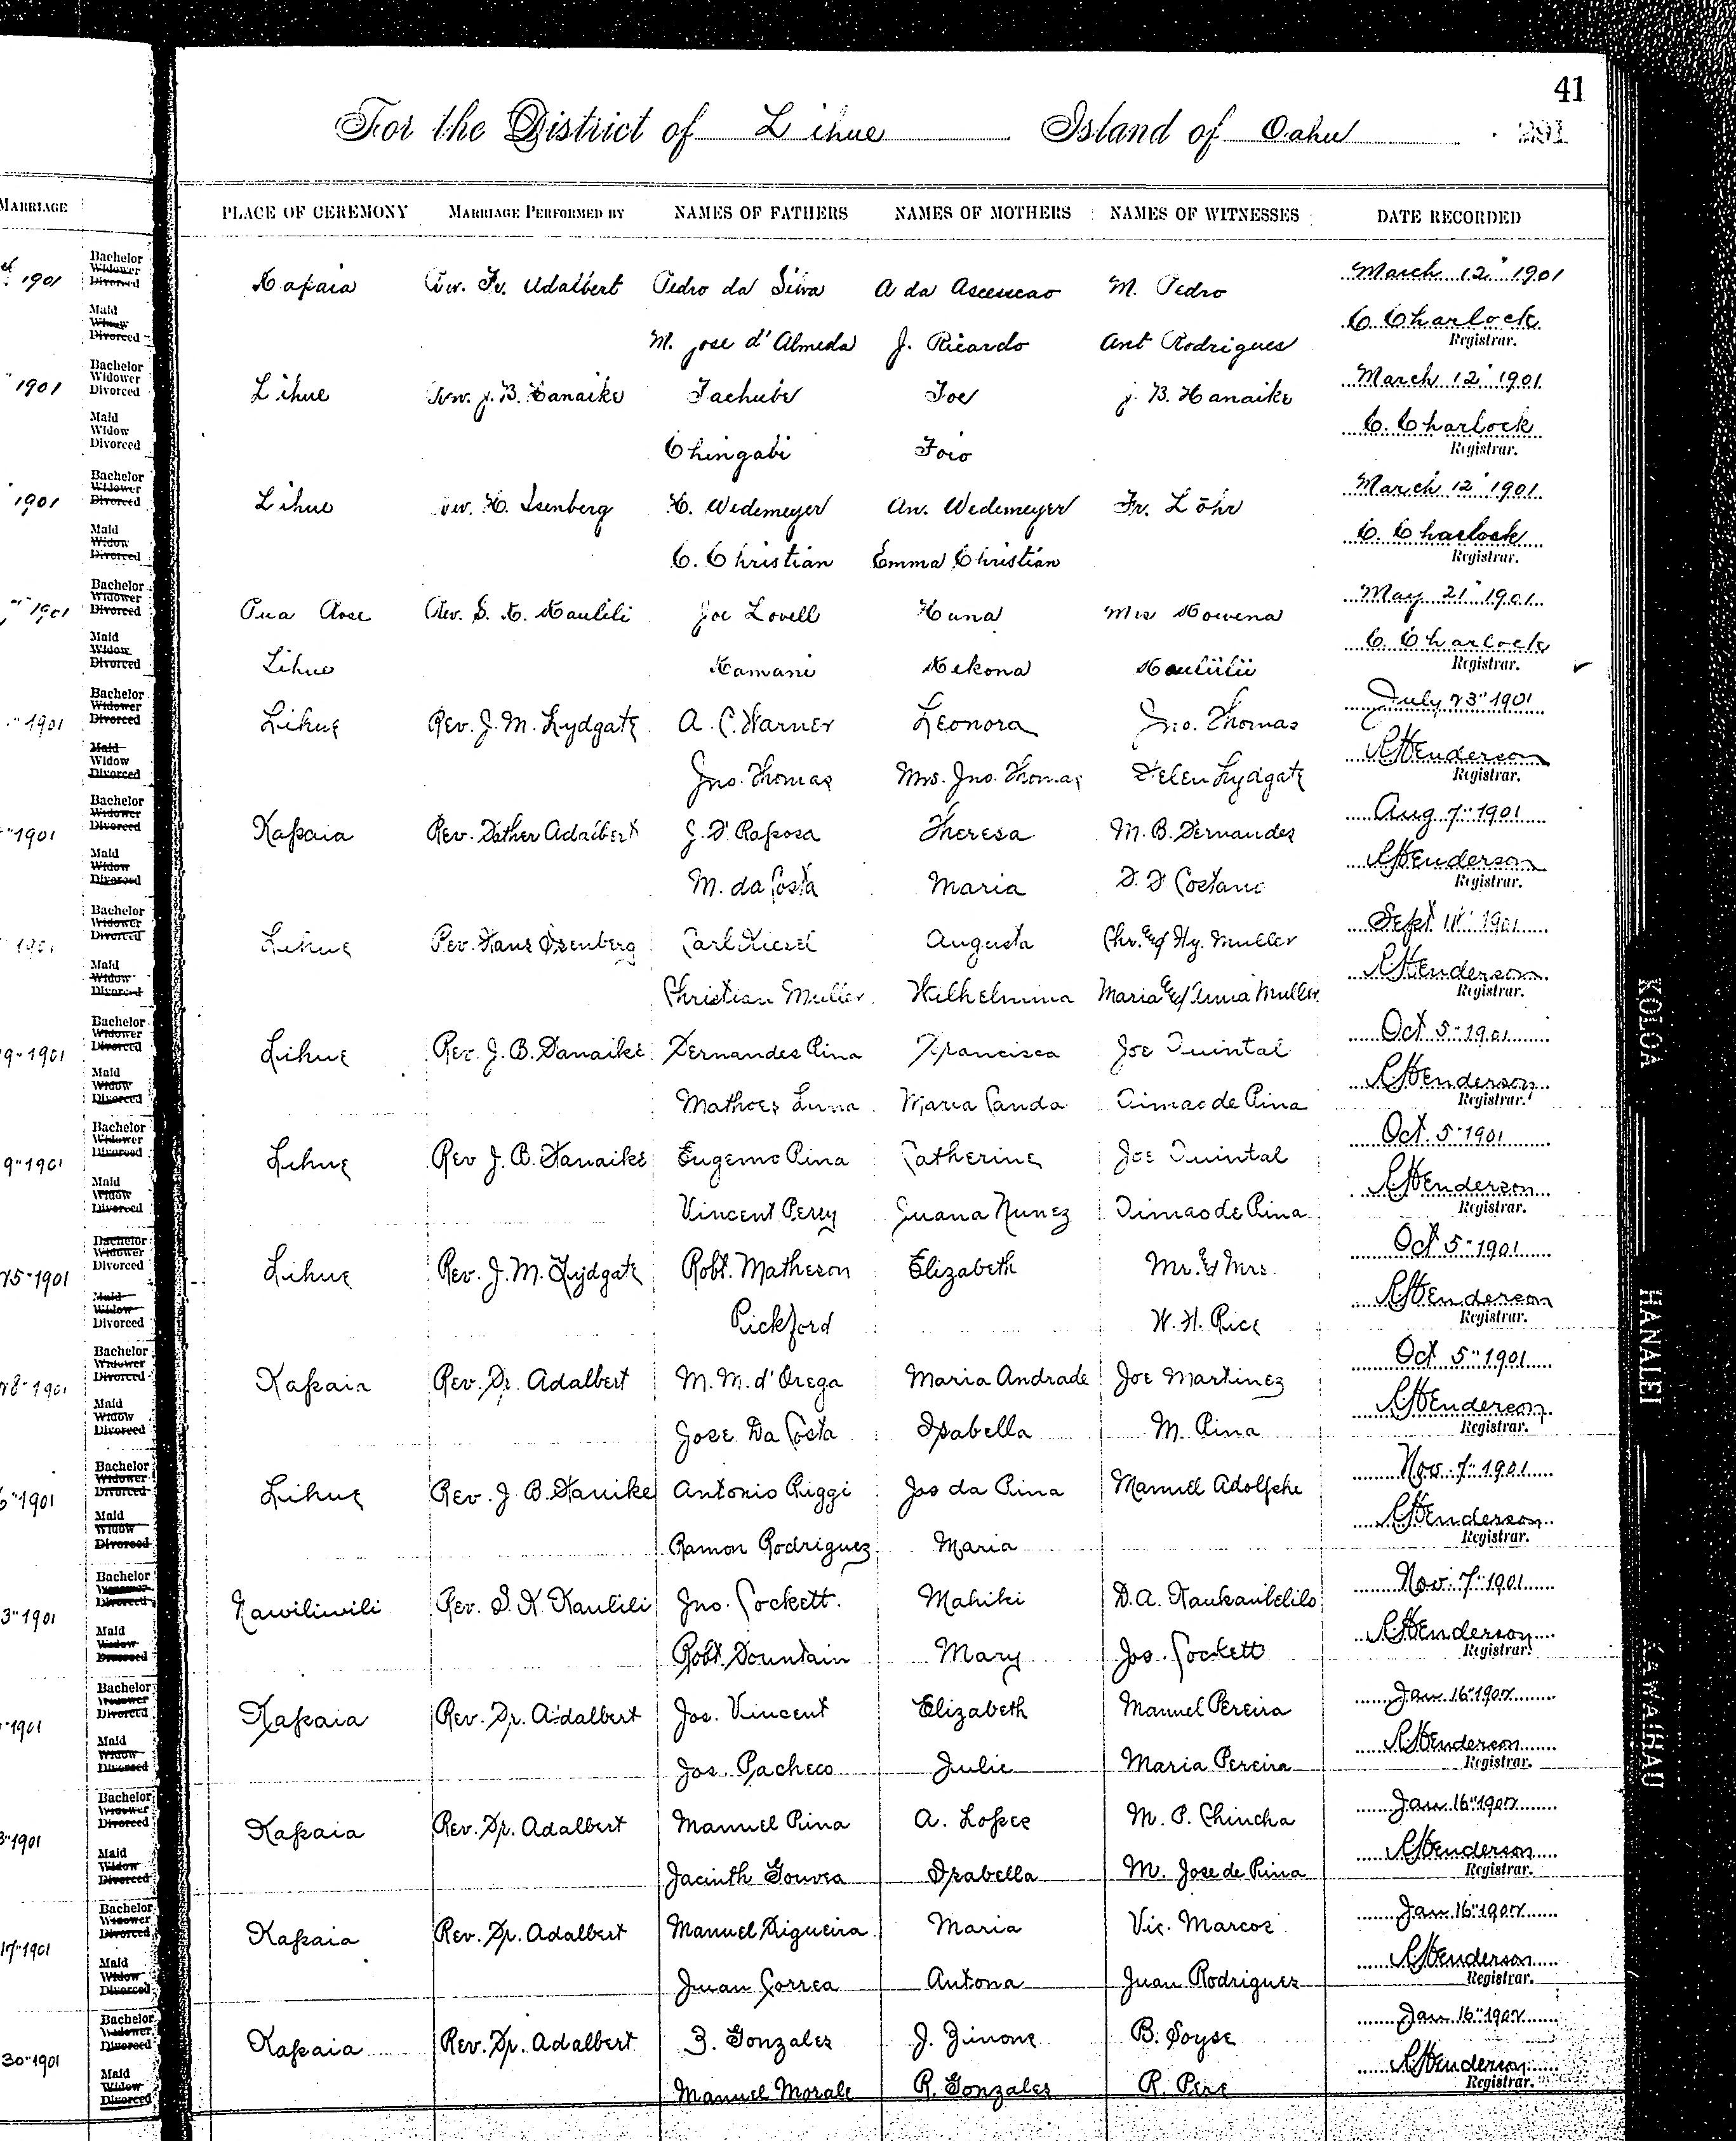 41
For the District of Lihue Island of Oahu 291
MARRIAGE PLACE OF CEREMONY MARRIAGE PERFORMED BY NAMES OF FATHERS NAMES OF MOTHERS NAMES OF WITNESSES DATE RECORDED
1901 Bachelor Widower Divorced Kapaia Rev. Fr. Adalbert Pedro da Silva A da Ascencao M. Pedro March 12" 1901
Maid Widow Divorced M. Jose d'Almeda J. Ricardo Ant Rodrigues C Charlock Registrar.
1901 Bachelor Widower Divorced Lihue Rev. J. B. Hanaike Tachube Toe J. B. Hanaike March 12" 1901
Maid Widow Divorced Chingabi Toio C. Charlock Registrar.
1901 Bachelor Widower Divorced Lihue Rev. H. Isenberg H. Wedemeyer An. Wedemeyer Fr. Löhr March 12" 1901
Maid Widow Divorced C. Christian Emma Christian C. Charlock Registrar.
1901 Bachelor Widower Divorced Pua Rose Rev. S. K. Kaulili Joe Lovell Hana Mrs Rowena May 21" 1901
Maid Widow Divorced Lihue Kamani Kekona Kaulilii C Charlock Registrar.
1901 Bachelor Widower Divorced Lihue Rev. J. M. Lydgate A. C. Warner Leonora Jno. Thomas July 23" 1901
Maid Widow Divorced Jno. Thomas Mrs. Jno. Thomas Helen Lydgate Henderson Registrar.
1901 Bachelor Widower Divorced Kapaia Rev. Father Adalbert J. F. Raposa Theresa M. B. Fernandes Aug 7" 1901
Maid Widow Divorced M. da Costa Maria Henderson Registrar.
1901 Bachelor Widower Divorced Lihue Rev. Hans Isenberg Carl Kiesel Augusta Chr. & Hy. Muller Sept 11" 1901
Maid Widow Divorced Christian Muller Wilhelmina Maria & Anna Muller Henderson Registrar.
9" 1901 Bachelor Widower Divorced Lihue Rev. J. B. Hanaike Fernandes Pina Francisca Joe Quintal Oct 5" 1901
Maid Widow Divorced Mathoes Luna Maria Canda Simao de Pina Henderson Registrar.
9" 1901 Bachelor Widower Divorced Lihue Rev J. B. Hanaike Eugemo Pina Catherine Joe Quintal Oct. 5" 1901
Maid Widow Divorced Vincent Perry Juana Nunez Simao de Pina Henderson Registrar.
25" 1901 Bachelor Widower Divorced Lihue Rev. J. M. Lydgate Robt. Matheson Elizabeth Mr. & Mrs. Oct 5" 1901
Maid Widow Divorced Pickford W. H. Rice Henderson Registrar.
28" 1901 Bachelor Widower Divorced Kapaia Rev. Fr. Adalbert M. M. d'Orega Maria Andrade Joe Martinez Oct 5" 1901
Maid Widow Divorced Jose Da Costa Isabella M. Pina Henderson Registrar.
6" 1901 Bachelor Widower Divorced Lihue Rev. J B. Hanike Antonio Riggi Jos da Pina Manuel Adolfche Nov. 7" 1901
Maid Widow Divorced Ramon Rodriguez Maria Henderson Registrar.
3" 1901 Bachelor Widower Divorced Nawiliwili Rev. S. K Kaulili Jno. Cockett. Mahiki D. A. Kaukaulelilo Nov. 7" 1901
Maid Widow Divorced Robt. Fountain Mary Jos. Cockett Henderson Registrar.
1901 Bachelor Widower Divorced Kapaia Rev. Fr. Adalbert Jos. Vincent Elizabeth Manuel Pereira Jan 16" 1902
Maid Widow Divorced Jos. Pacheco Julie Maria Pereira Henderson Registrar.
3" 1901 Bachelor Widower Divorced Kapaia Rev. Fr. Adalbert Manuel Pina A. Lopee M. P. Chincha Jan 16" 1902
Maid Widow Divorced Jacinth Gouvea Isabella M. Jose de Pina Henderson Registrar.
17" 1901 Bachelor Widower Divorced Kapaia Rev. Fr. Adalbert Manuel Figueira Maria Vic. Marcos Jan 16" 1902
Maid Widow Divorced Juan Correa Antona Juan Rodriguez Henderson Registrar.
30" 1901 Bachelor Widower Divorced Kapaia Rev. Fr. Adalbert Z. Gonzales J. Zinone B. Soyse Jan 16" 1902
Maid Widow Divorced Manuel Morale R. Gonzales R. Pere Henderson Registrar.
KOLOA
HANALEI
KAWAIHAU